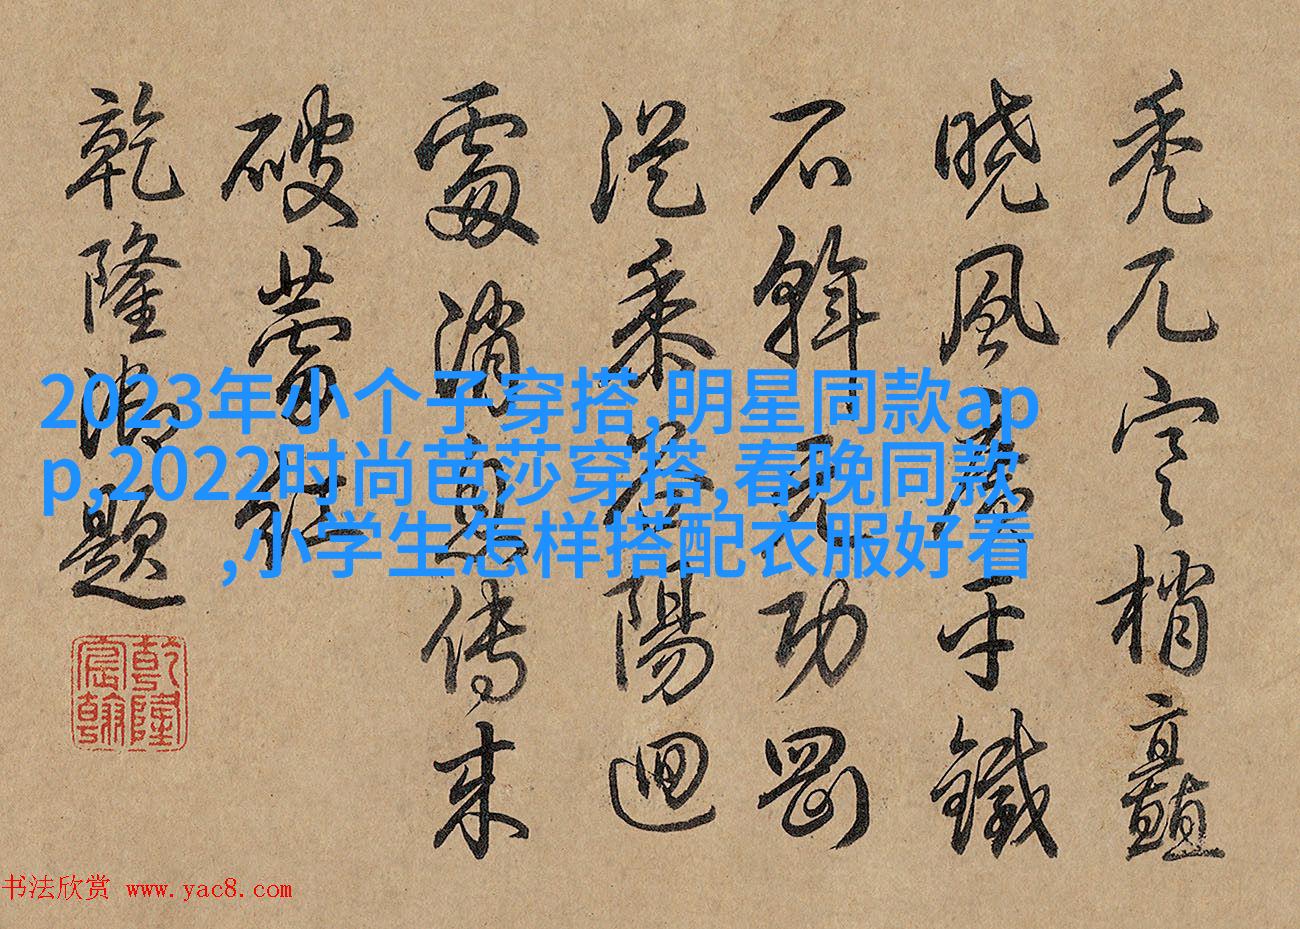 禿兀空梢矗
曉風平鐵
石斡元功剛
從黍谷陽迴
處消息傳來
破蒙
乾隆御題
乾隆宸翰
2023年小个子穿搭,明星同款ap
p,2022时尚芭莎穿搭,春晚同款
,小学生怎样搭配衣服好看
书法欣赏 www.yac8.com